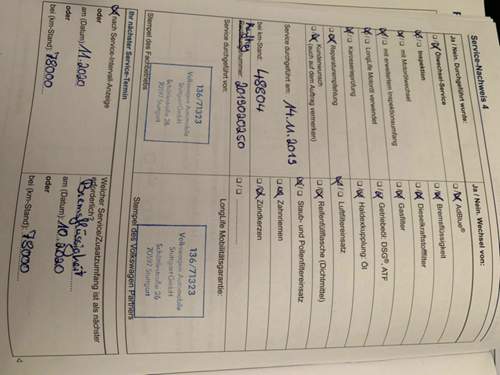 Service-Nachweis 4
Ja / Nein. Durchgeführt wurde:
Ölwechsel-Service
Inspektion
mit Motorölwechsel
mit erweitertem Inspektionsumfang
LongLife Motoröl verwendet
Karosserieprüfung
Reparaturempfehlung
Kundenwunsch
(auch auf dem Auftrag vermerken)
Service durchgeführt am: 14.11.2019
bei km-Stand: 48804
Auftragsnummer: 2019020250
Service durchgeführt von:
136/71323
Volkswagen Automobile
Stuttgart GmbH
70197 Stuttgart
Stempel des Fachbetriebs
Ihr nächster Service-Termin
nach Service-Intervall-Anzeige
oder
am (Datum): 11.2020
oder
bei (km-Stand): 78000
Ja / Nein. Wechsel von:
AdBlue®
Bremsflüssigkeit
Dieselkraftstofffilter
Gasfilter
Getriebeöl: DSG® ATF
Haldexkupplung: Öl
Luftfiltereinsatz
Reifenfüllflasche (Dichtmittel)
Staub- und Pollenfiltereinsatz
Zahnriemen
Zündkerzen
LongLife Mobilitätsgarantie:
136/71323
Volkswagen Automobile
Stuttgart GmbH
70197 Stuttgart
Stempel des Volkswagen Partners
Welcher Service/Zusatzumfang ist als nächster
erforderlich? Bremsflüssigkeit
am (Datum): 10.2020
oder
bei (km-Stand): 78000